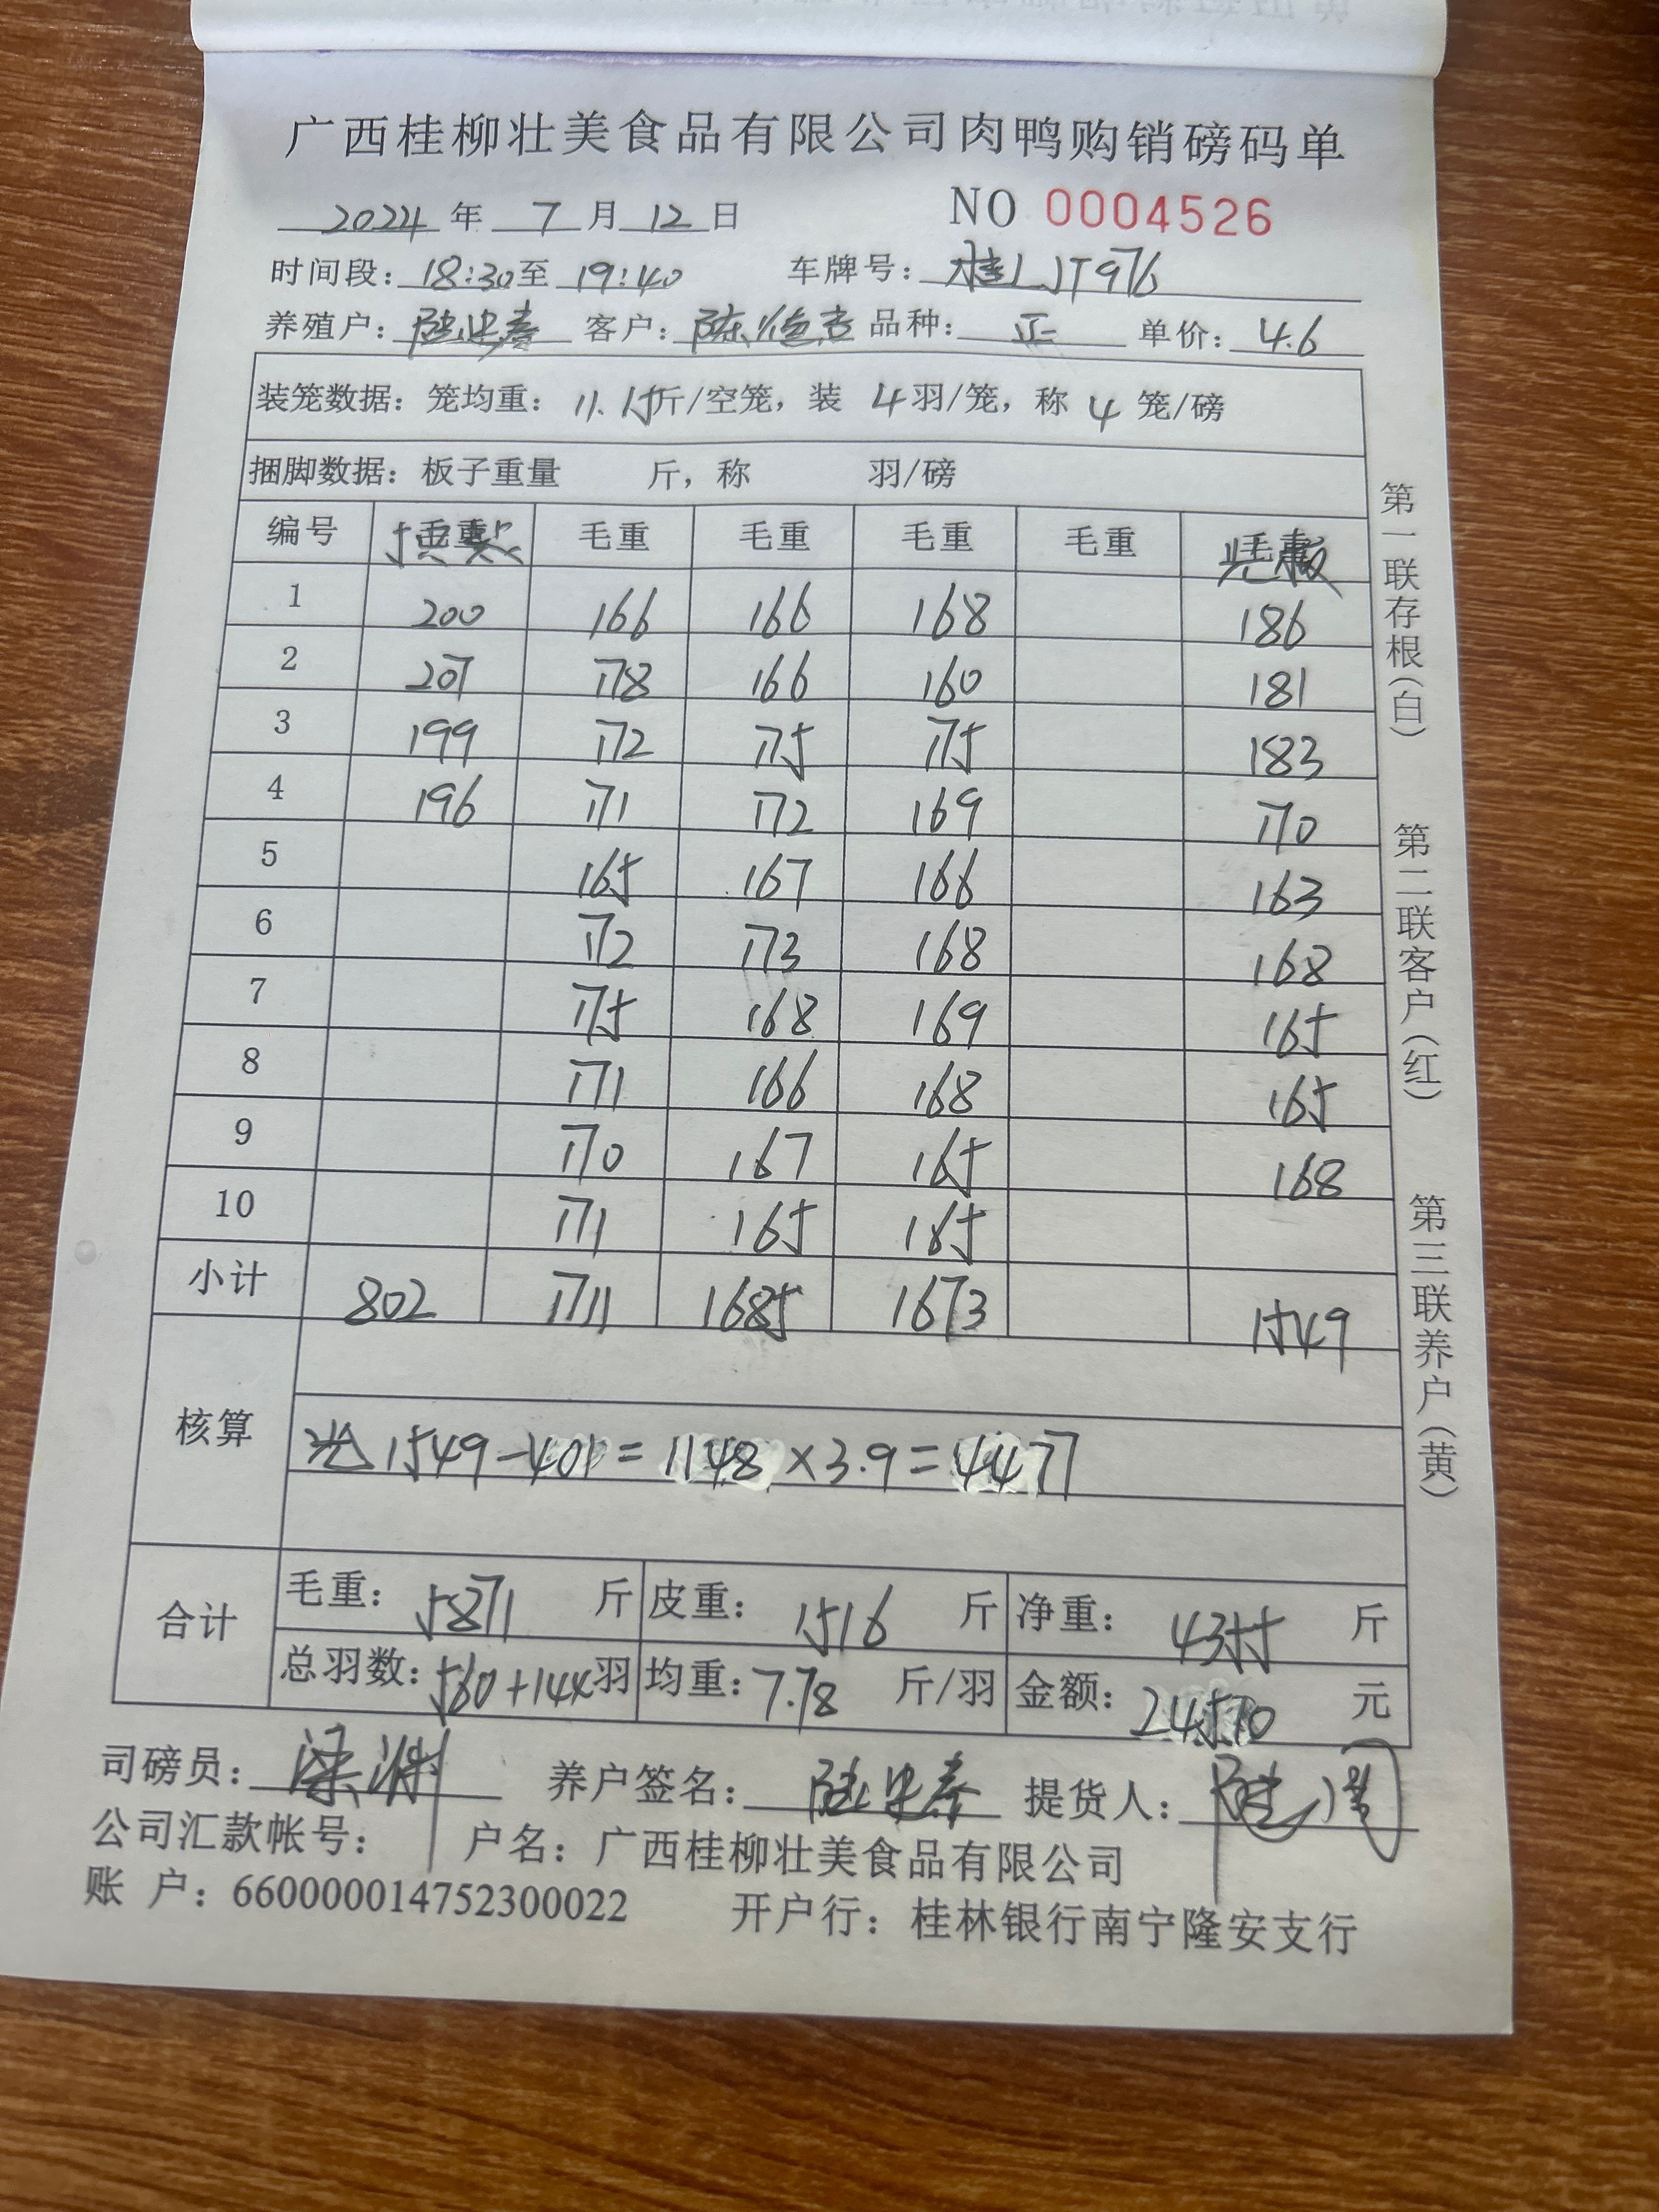 广西桂柳壮美食品有限公司肉鸭购销磅码单
2024 年 7 月 12 日 NO 0004526
时间段：18:30至 19:40 车牌号：桂LJT976
养殖户： 客户： 品种：正 单价：4.6
装笼数据：笼均重：11.15斤/空笼，装 4 羽/笼，称 4 笼/磅
捆脚数据：板子重量 斤，称 羽/磅
编号 毛重 毛重 毛重 毛重 毛重 毛重
1 200 166 166 168 186
2 207 178 166 160 181
3 199 172 175 175 183
4 196 171 172 169 170
5 165 167 166 163
6 172 173 168 168
7 175 168 169 165
8 171 166 168 165
9 170 167 165 168
10 171 165 165
小计 802 1711 1685 1673 1549
核算
1549-401=1148×3.9=4477
合计 毛重：5871 斤 皮重：1516 斤 净重：4355 斤
总羽数：560+144羽 均重：7.78 斤/羽 金额：24570 元
司磅员： 养户签名： 提货人：
公司汇款帐号： 户名：广西桂柳壮美食品有限公司
账 户：660000014752300022 开户行：桂林银行南宁隆安支行
第一联存根（白） 第二联客户（红） 第三联养户（黄）